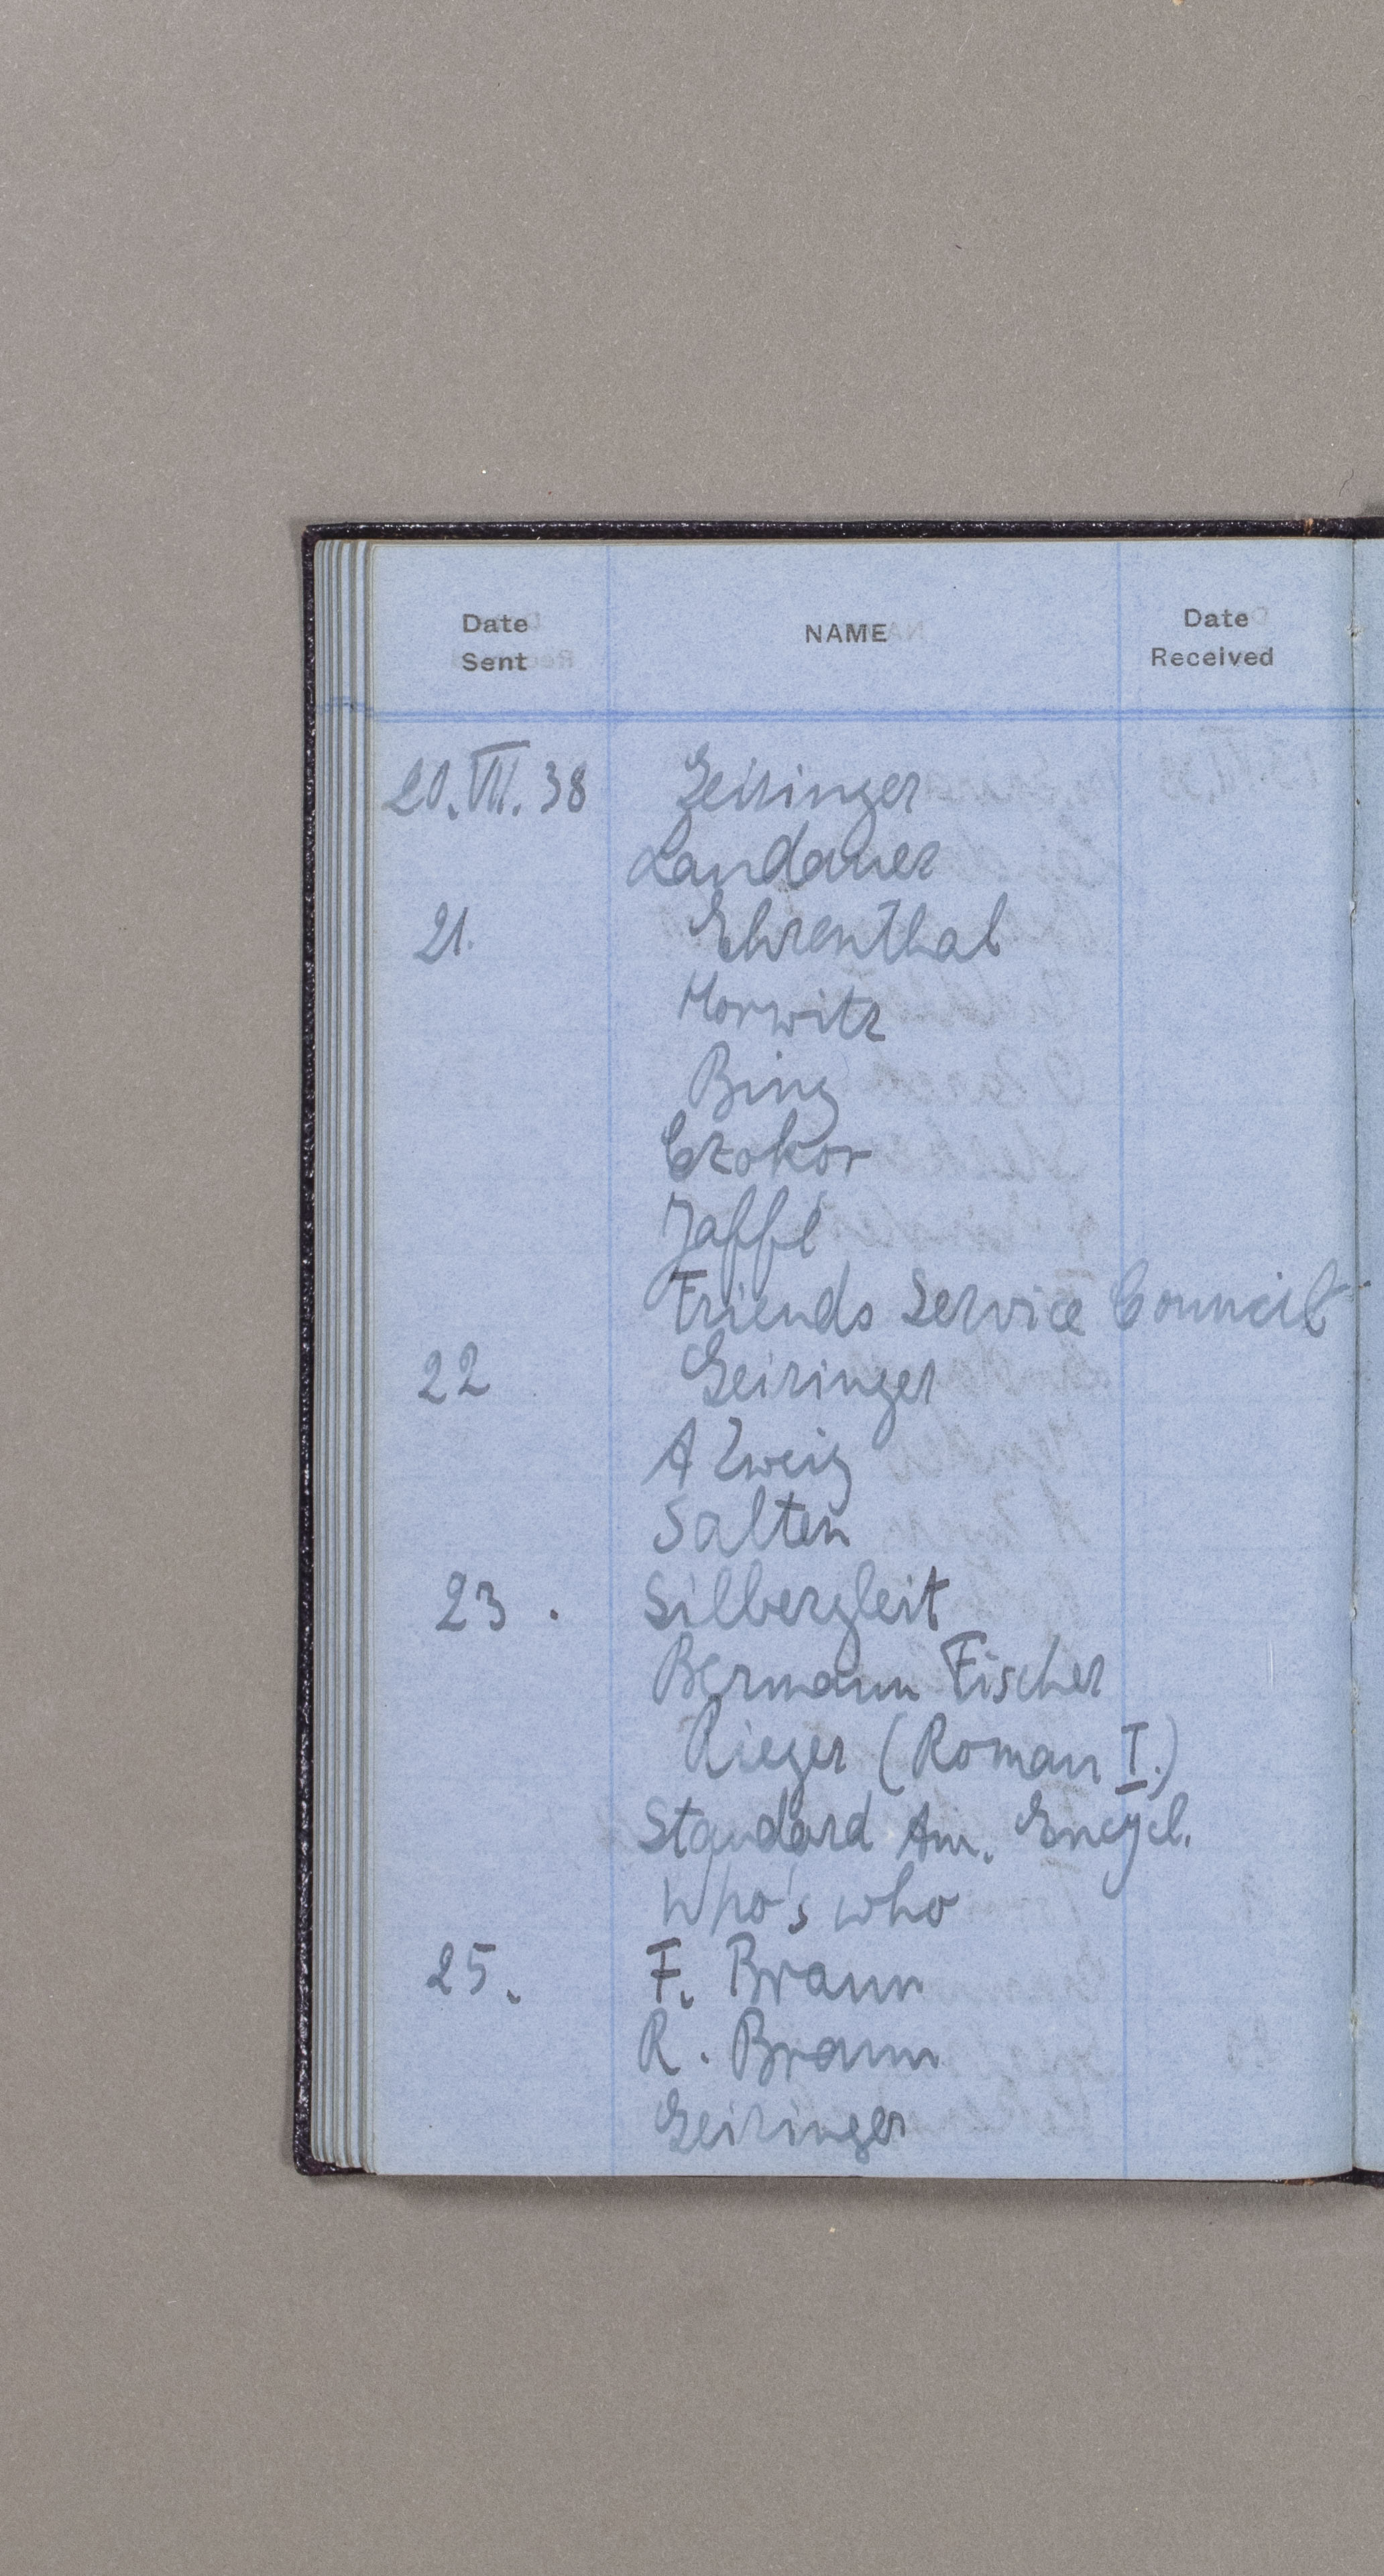 Date Sent NAME Date Received
20.VII.38 Geiringer
Landauer
21. Ehrenthal
Horwitz
Bing
Czokor
Jaffé
Friends Service Council
22 Geiringer
A Zweig
Salten
23. Silbergleit
Bermann Fischer
Rieger (Roman I.)
Standard Am. Encycl.
Who's who
25. F. Braun
R. Braun
Geiringer